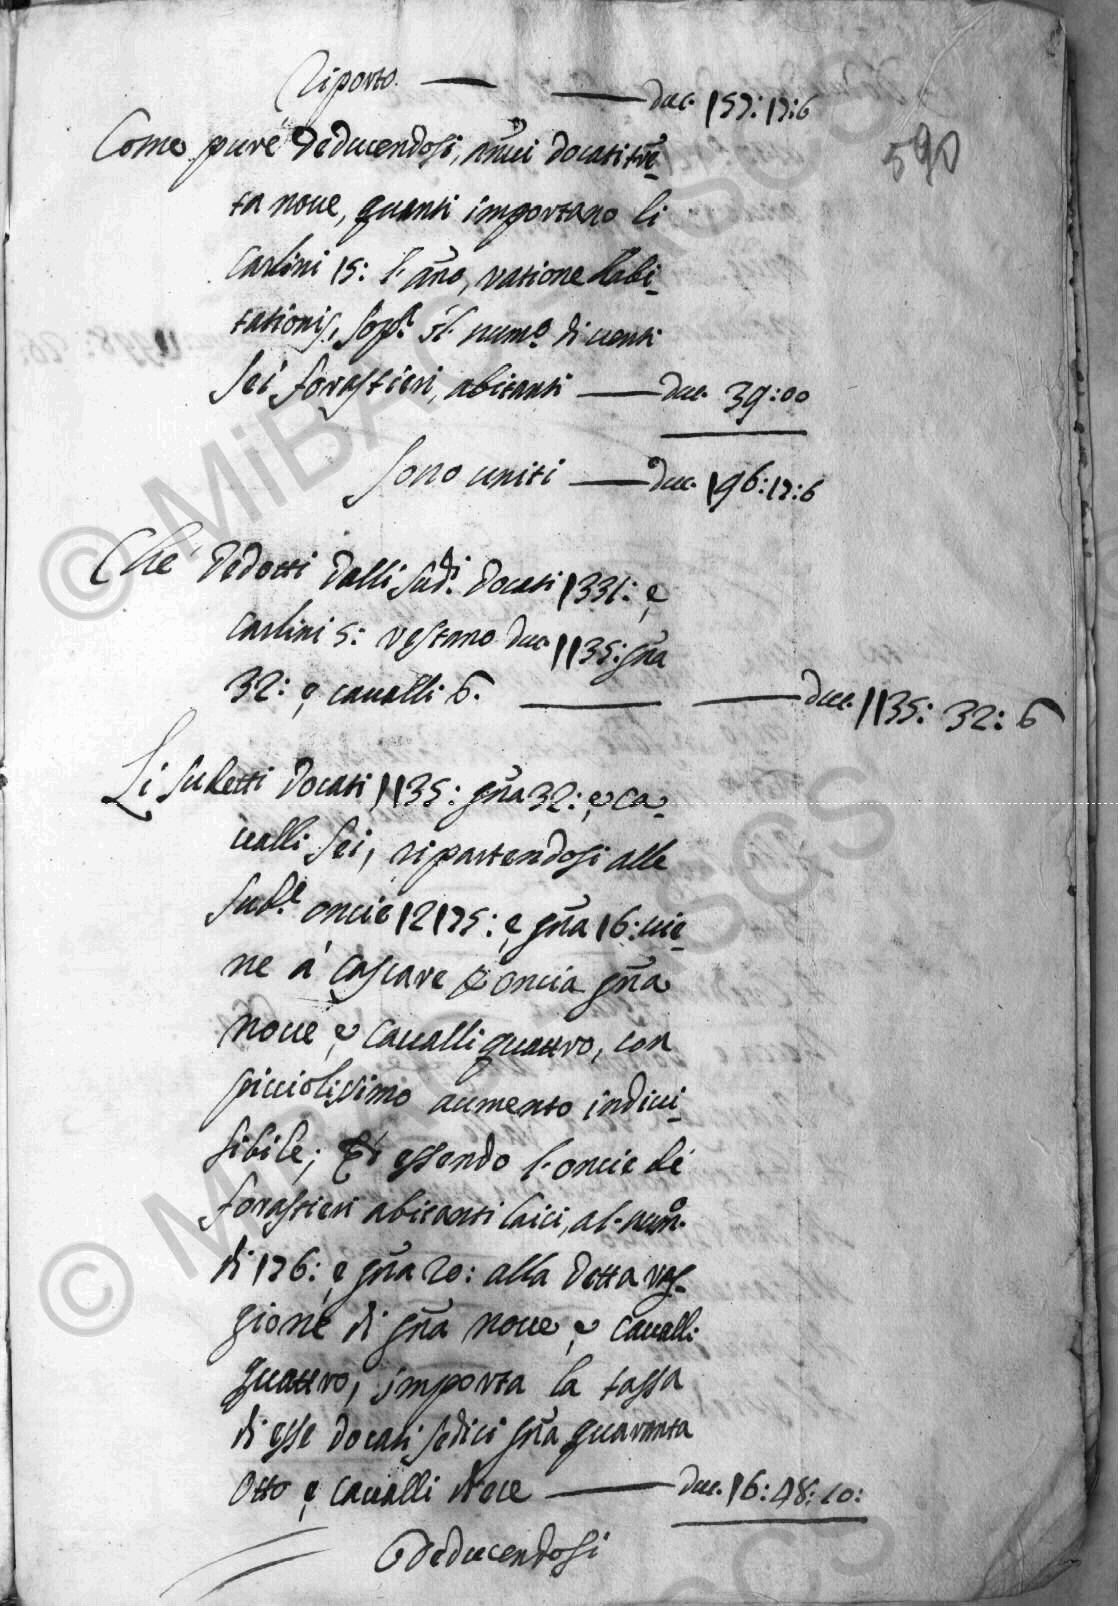 Riporto. — — duc. 157:17:6
590
Come pure deducendosi, annui docati tren-
ta noue, quanti importano li
Carlini 15: l'año, ratione habi-
tationis, sop.ª il num.º di uenti
sei forastieri, abitanti — duc. 39:00
Sono uniti — duc. 196:17:6
Che dedotti dalli sud.i docati 1331: e
Carlini 5: restano duc. 1135: gña
32: e caualli 6. — — duc. 1135: 32: 6
Li sudetti docati 1135: gña 32: e ca-
ualli sei, ripartendosi alle
sud.e oncie 12175: e gña 16: uie-
ne à cascare p oncia gña
noue, e caualli quattro, con
picciolissimo aumento indiui-
sibile; Et essendo l'oncie de
forastieri abitanti laici, al num.º
di 176: e gña 20: alla detta rag-
gione di gña noue e caualli
quattro, importa la tassa
di esse docati sedici gña quaranta
otto e caualli diece — duc. 16:48:10:
Deducendosi
© MiBAC ASCS
© MiBAC ASCS